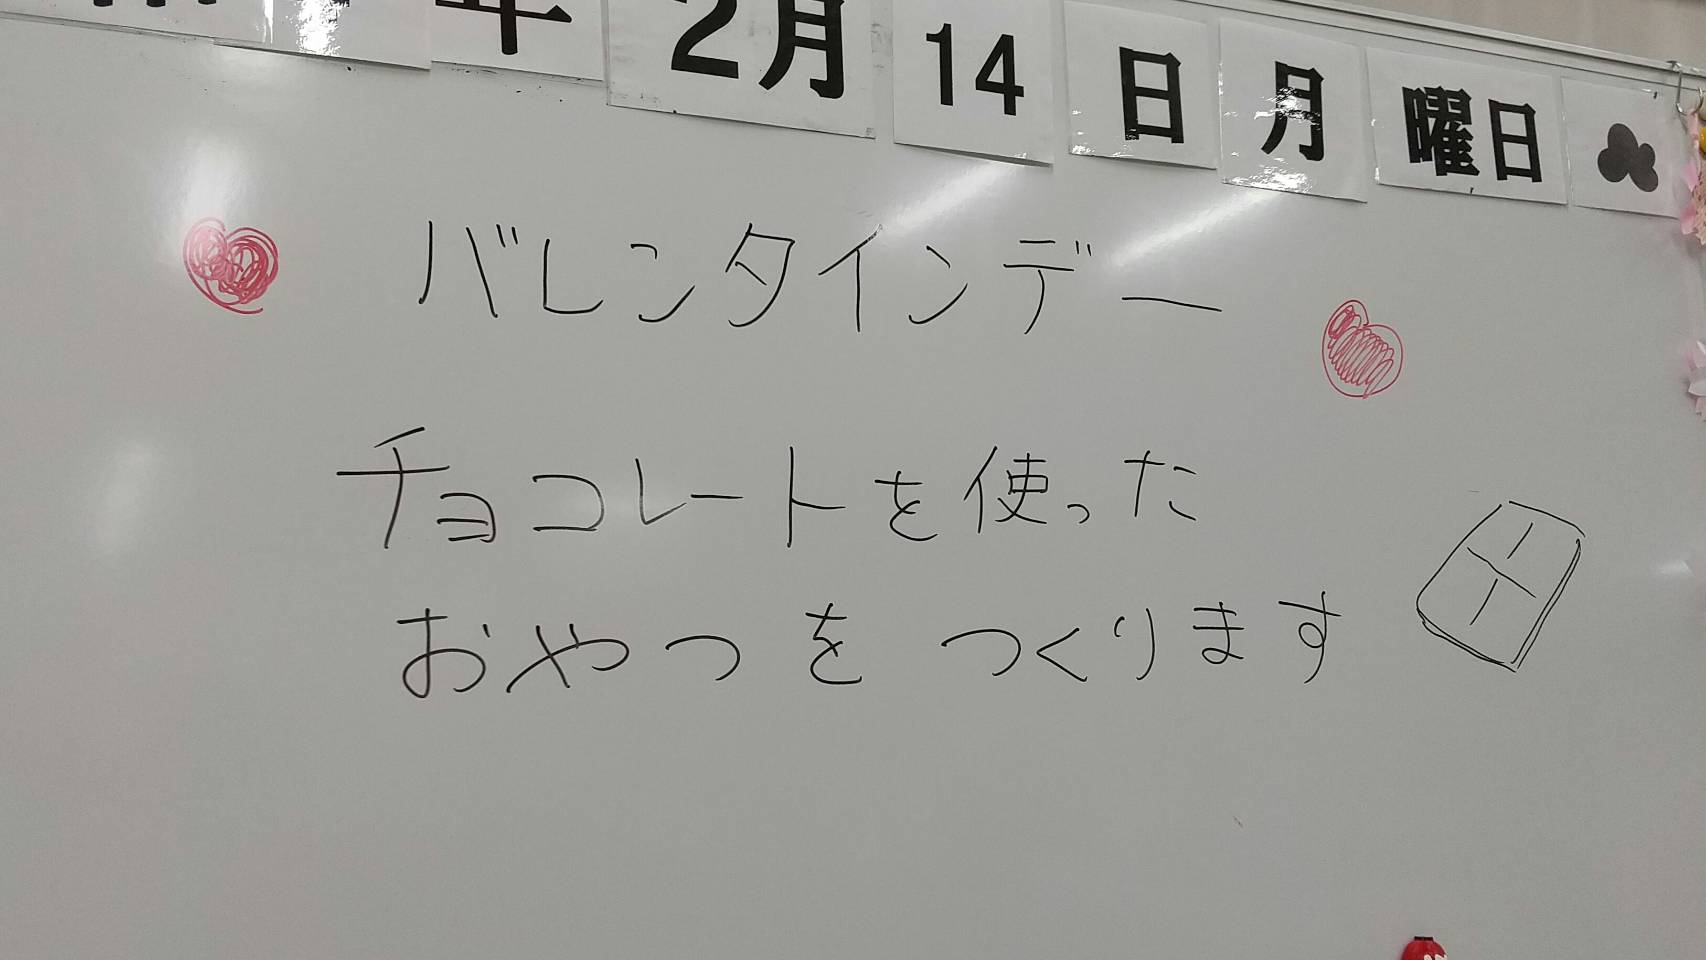 年2月14日月曜日
バレンタインデー
チョコレートを使った
おやつをつくります